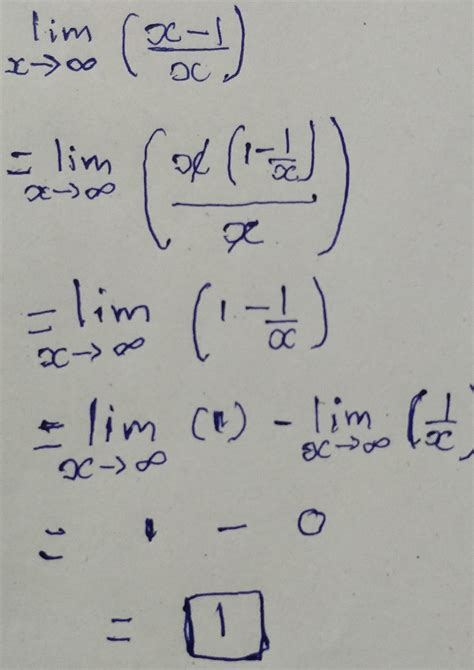 lim x→∞ (x-1/x)
= lim x→∞ (x(1-1/x)/x)
= lim x→∞ (1-1/x)
= lim x→∞ (1) - lim x→∞ (1/x)
= 1 - 0
= 1